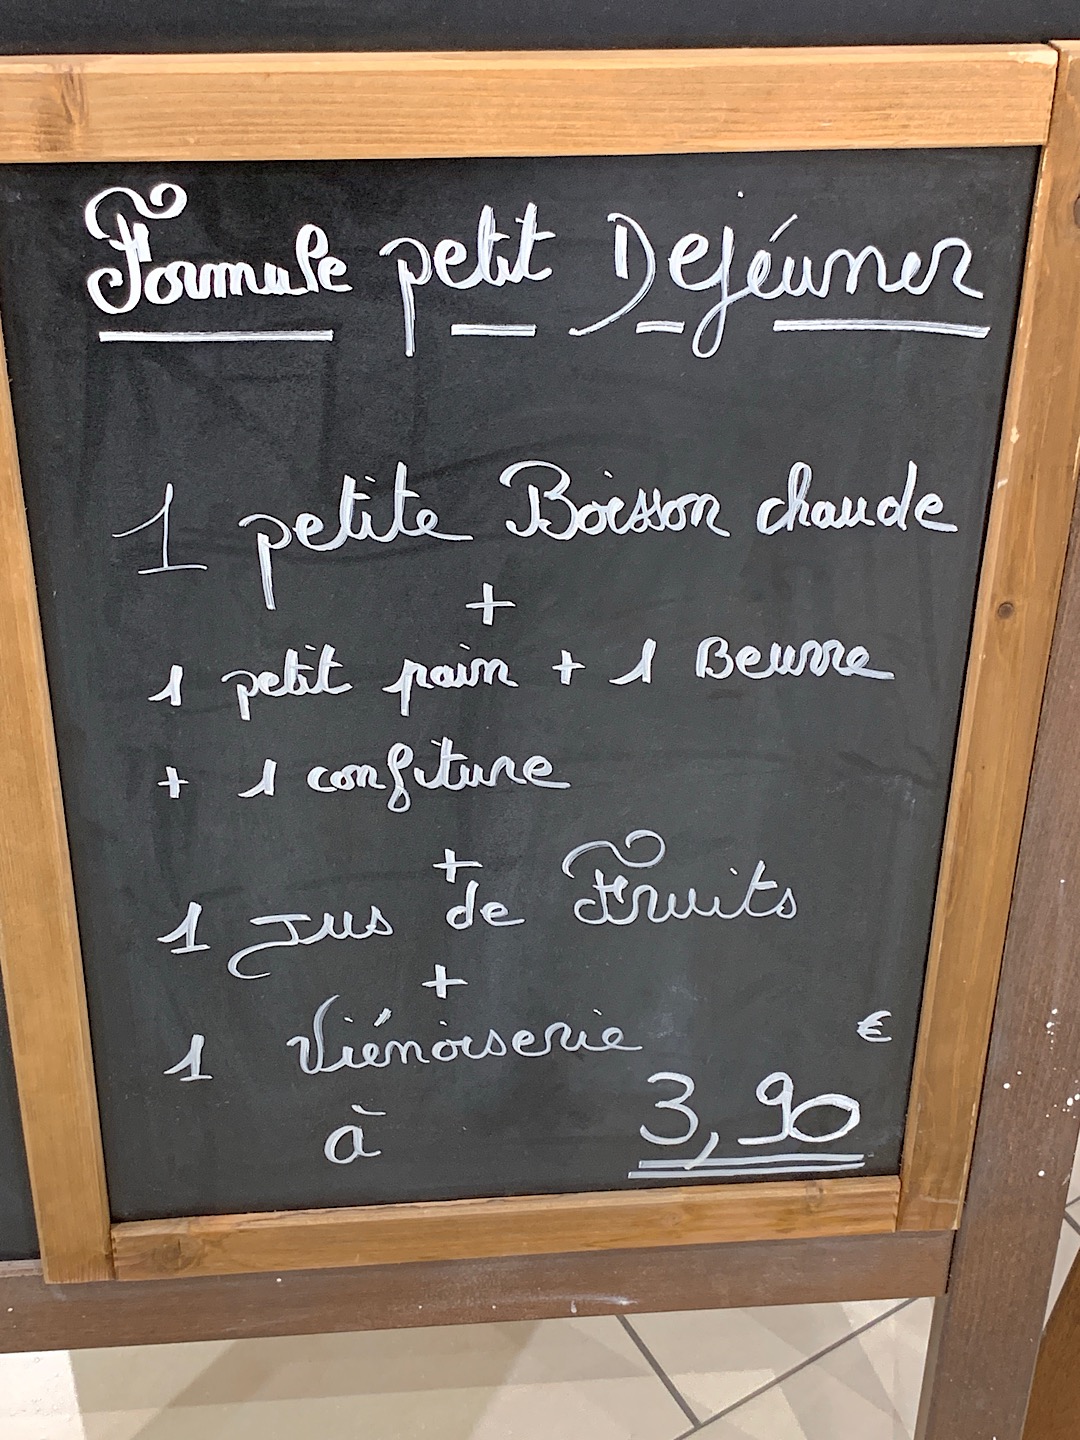 Formule petit Dejéuner
1 petite Boisson chaude
+
1 petit pain + 1 Beurre
+ 1 confiture
+
1 Jus de Fruits
+
1 Viénoiserie
à 3,90 €